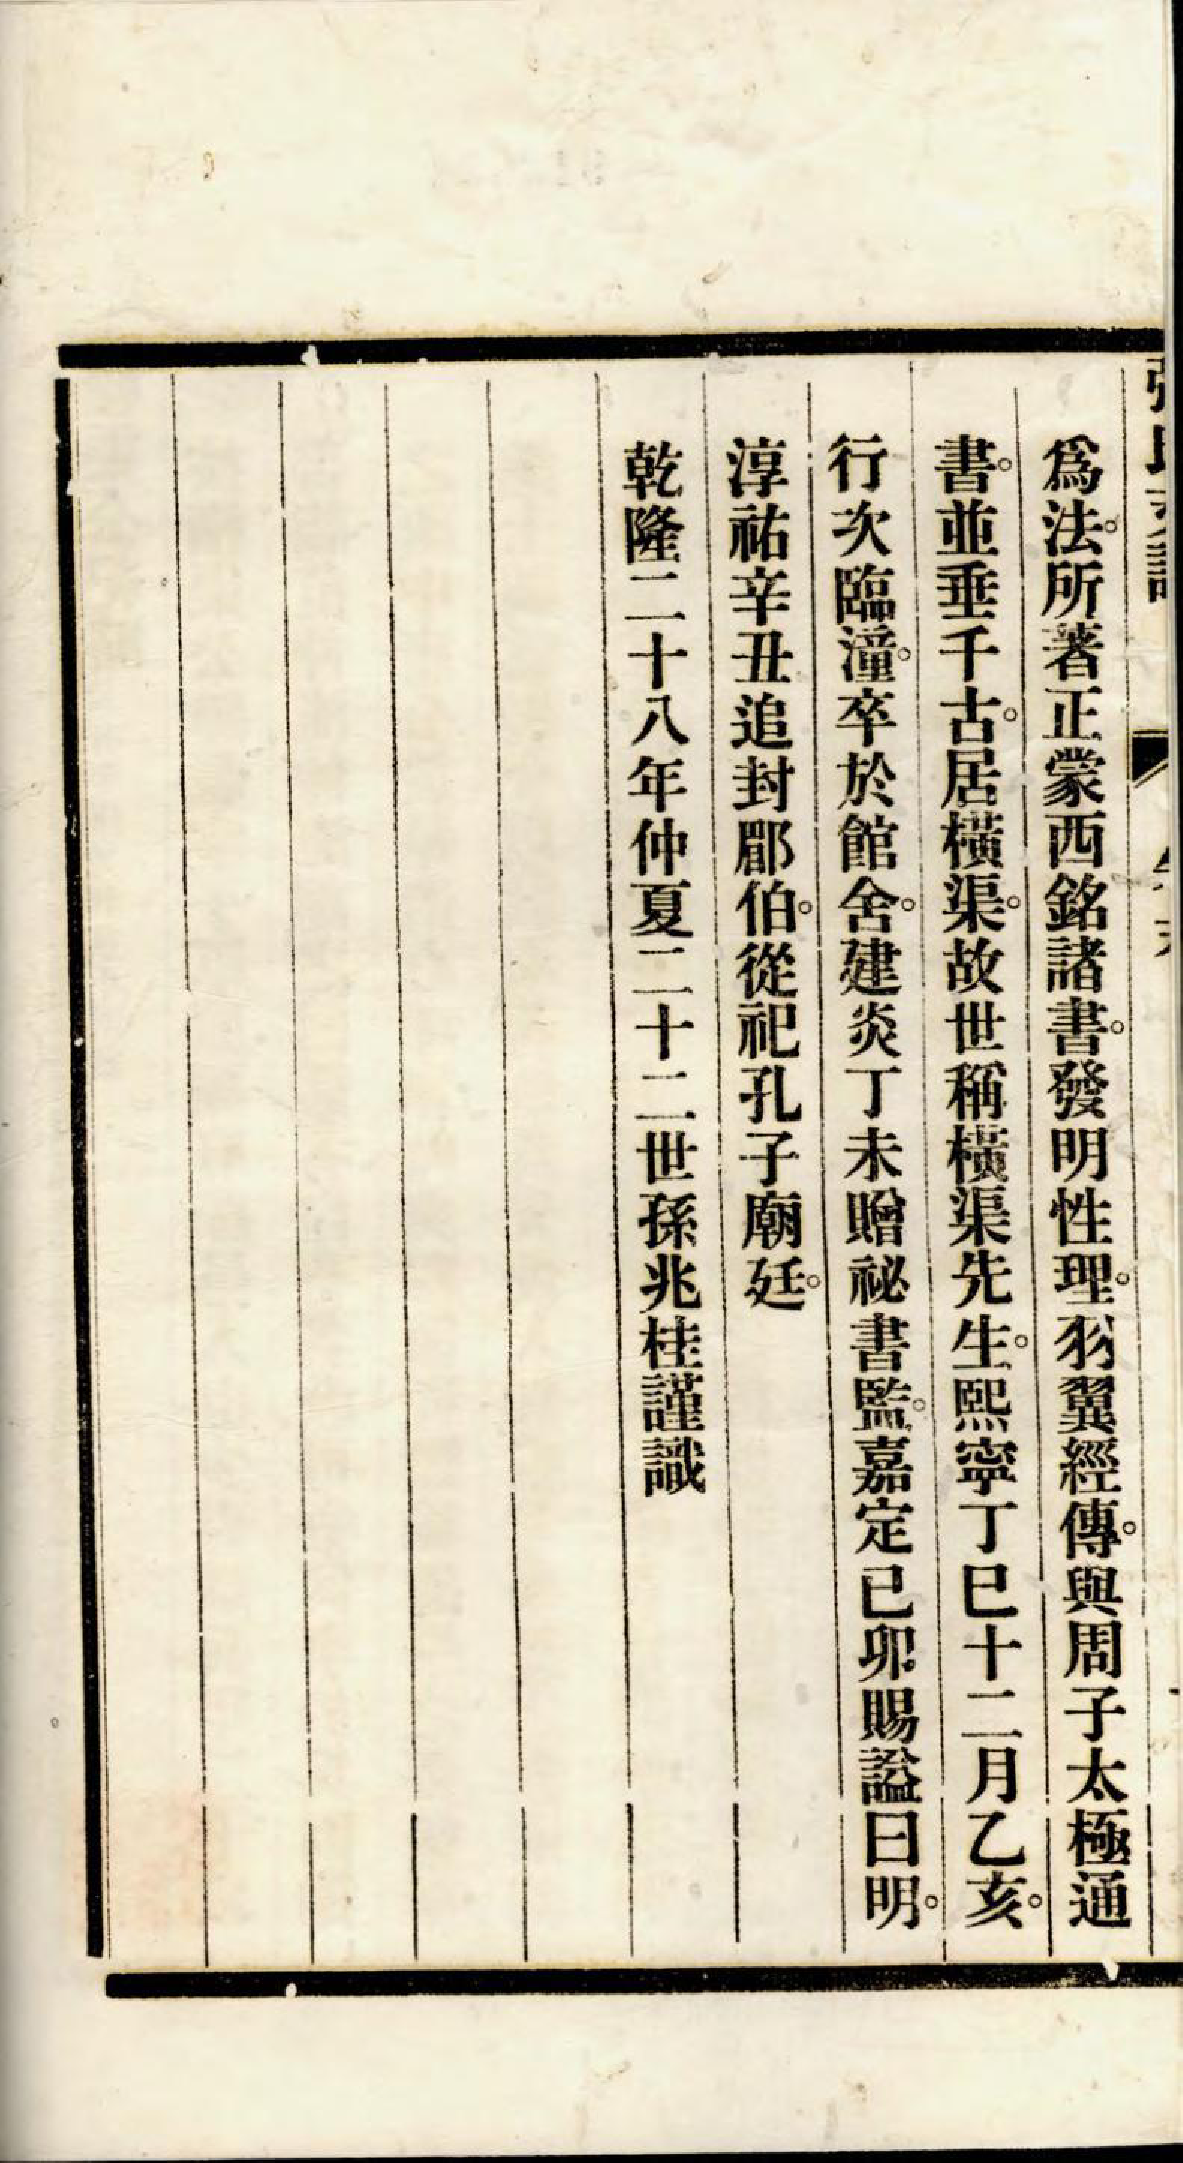 爲法。所著正蒙西銘諸書。發明性理。羽翼經傳。與周子太極通
書。並垂千古。居橫渠。故世稱橫渠先生。熙寧丁巳十二月乙亥。
行次臨潼。卒於館舍。建炎丁未贈祕書監。嘉定己卯賜謚曰明。
淳祐辛丑追封郿伯。從祀孔子廟廷。
乾隆二十八年仲夏二十二世孫兆桂謹識